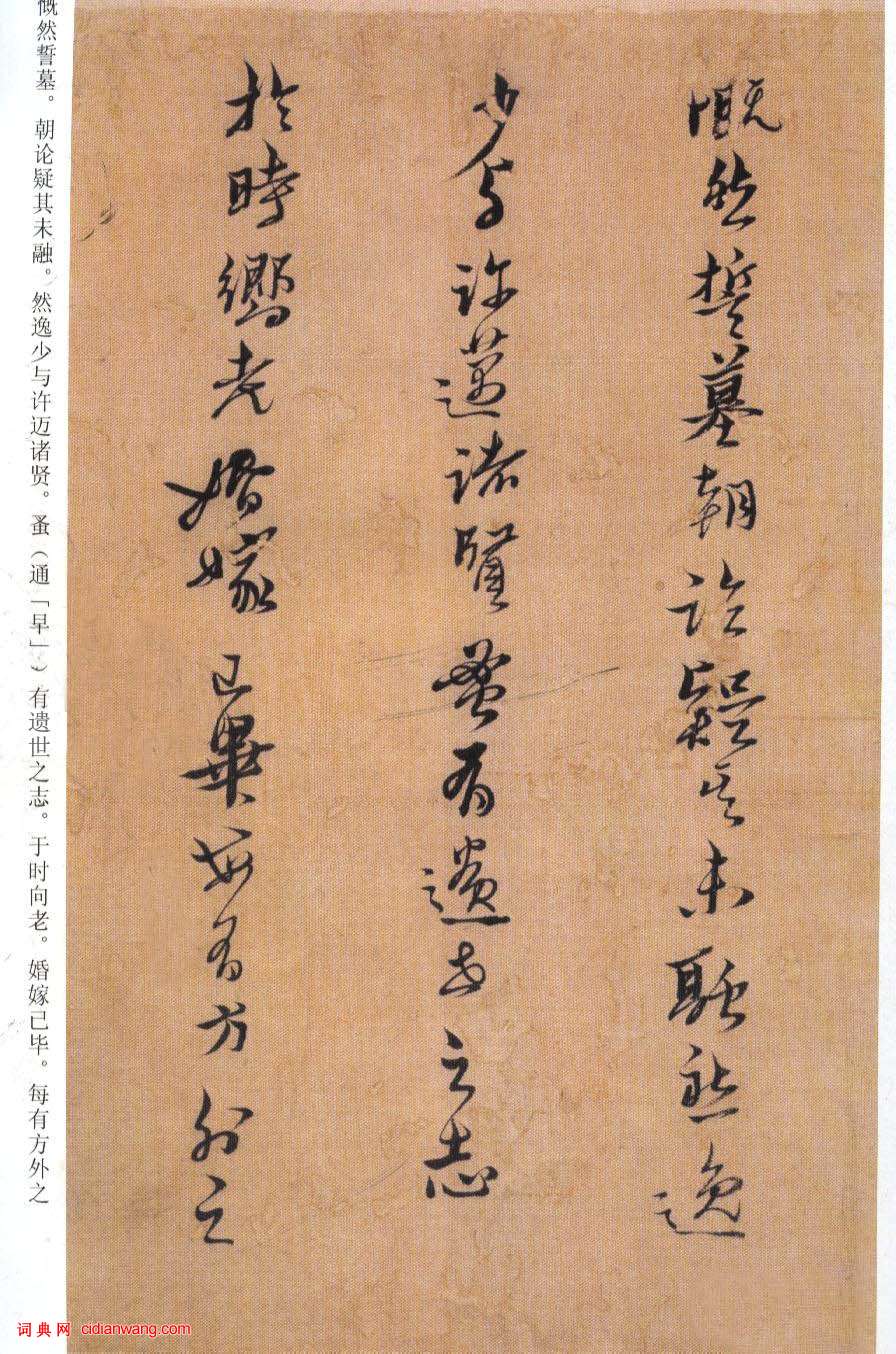 慨然誓墓朝论疑其未融然逸
少与许迈诸贤蚤有遗世之志
於時嚮老婚嫁已畢每有方外之
慨然誓墓。朝论疑其未融。然逸少与许迈诸贤。蚤（通「早」）有遗世之志。于时向老。婚嫁己毕。每有方外之
词典网 cidianwang.com